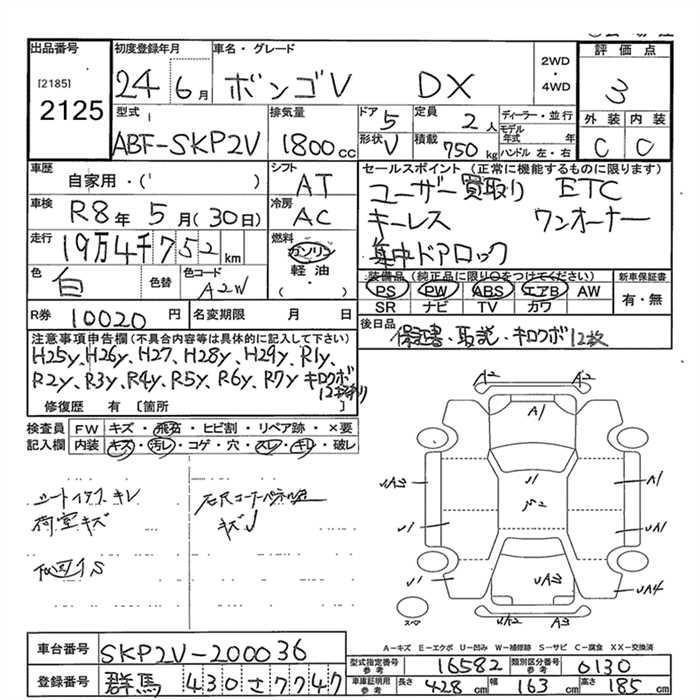 出品番号
[2185]
2125
初度登録年月
24 6月
車名・グレード
ボンゴV DX
2WD
・
4WD
評価点
3
外装 内装
C C
型式
ABF-SKP2V
排気量
1800cc
ドア 5
形状 V
定員 2人
積載 750kg
ディーラー・並行
モデル年式 年
ハンドル 左・右
車歴
自家用・( )
車検
R8年 5月(30日)
走行
19万4千752km
色
白
色替
色コード
A2W
シフト
AT
冷房
AC
燃料
ガソリン
軽油
( ・ )
セールスポイント(正常に機能するものに限ります)
ユーザー買取り ETC
キーレス ワンオーナー
集中ドアロック
装備品(純正品に限り○をつけてください)
PS PW ABS エアB AW
SR ナビ TV カワ
新車保証書
有・無
後日品
保証書、取説、キロクボ12枚
R券 10020円
名変期限 月 日
注意事項申告欄(不具合内容等は具体的に記入して下さい)
H25y、H26y、H27、H28y、H29y、R1y、
R2y、R3y、R4y、R5y、R6y、R7y キロクボ
修復歴 有 [箇所 ]
検査員
記入欄
FW キズ・飛石・ヒビ割・リペア跡・×要
内装 キズ・汚レ・コゲ・穴・スレ・キレ・破レ
荷室キズ
A2 A2
A1
A1
UA1
UA4
U1
U1
A3
スペア
A−キズ E−エクボ U−凹み W−補修跡 S−サビ C−腐食 XX−交換済
車台番号
SKP2V-200036
登録番号
群馬 430 さ 7747
型式指定番号 参考 16582
類別区分番号 参考 0130
車庫証明用 参考 長さ 428cm 幅 163cm 高さ 185cm